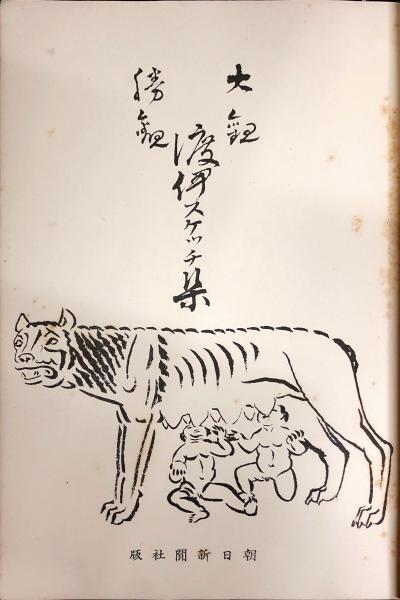 大観
勝観
渡伊スケッチ集
版社聞新日朝